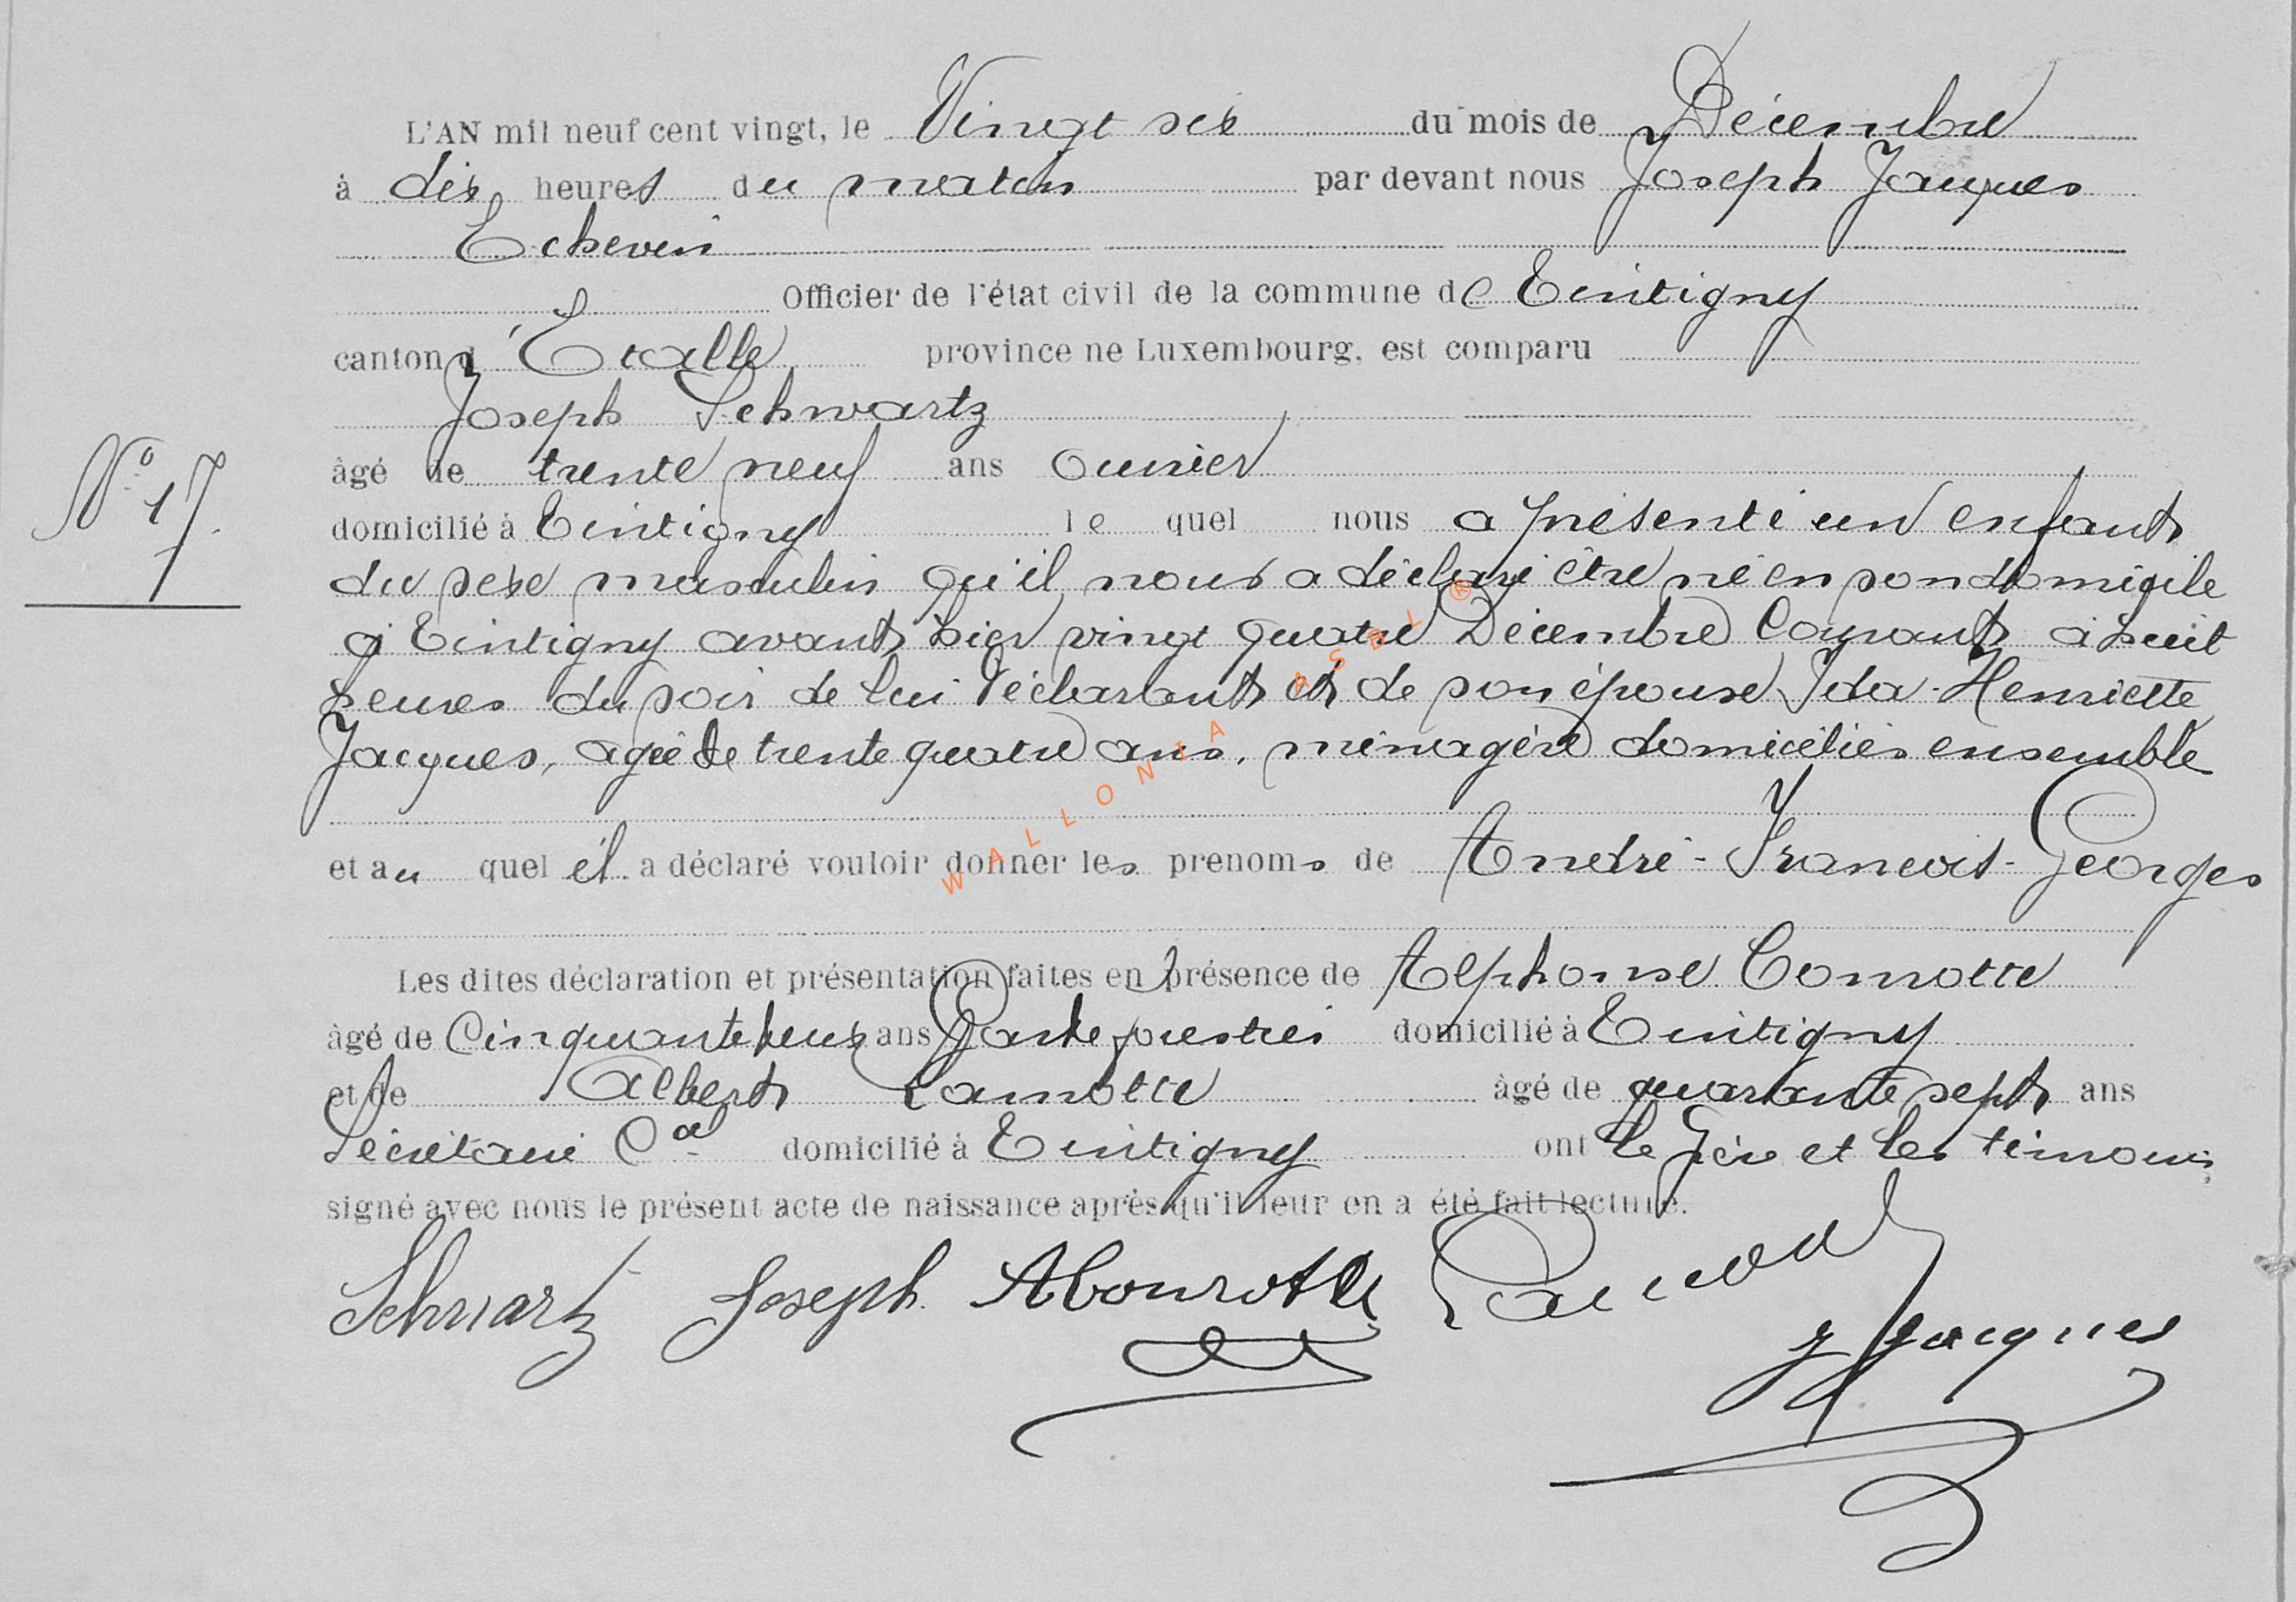 L'AN mil neuf cent vingt, le Vingt six du mois de Décembre
à dix heures du matin par devant nous Joseph Jacques
Echevin
Officier de l'état civil de la commune de Tintigny
canton d'Etalle province ne Luxembourg, est comparu
Joseph Schwartz
âgé de trente neuf ans ouvrier
N° 17.
domicilié à Tintigny le quel nous a présenté un enfant
du sexe masculin qu'il nous a déclaré être né en son domicile
à Tintigny avant hier vingt quatre Décembre Courant à huit
heures du soir de lui déclarant et de son épouse Ida-Henriette
Jacques, agée de trente quatre ans, ménagère domiciliés ensemble
et au quel il a déclaré vouloir donner les prenoms de André-François-Georges
Les dites déclaration et présentation faites en présence de Alphonse Conrotte
âgé de Cinquante deux ans Garde forestier domicilié à Tintigny
et de Albert Lamotte âgé de quarante sept ans
Secrétaire Cal domicilié à Tintigny ont le père et les témoins
signé avec nous le présent acte de naissance après qu'il leur en a été fait lecture.
Schwartz Joseph AConrotte
J Jacques
WALLONIA ASBL ®